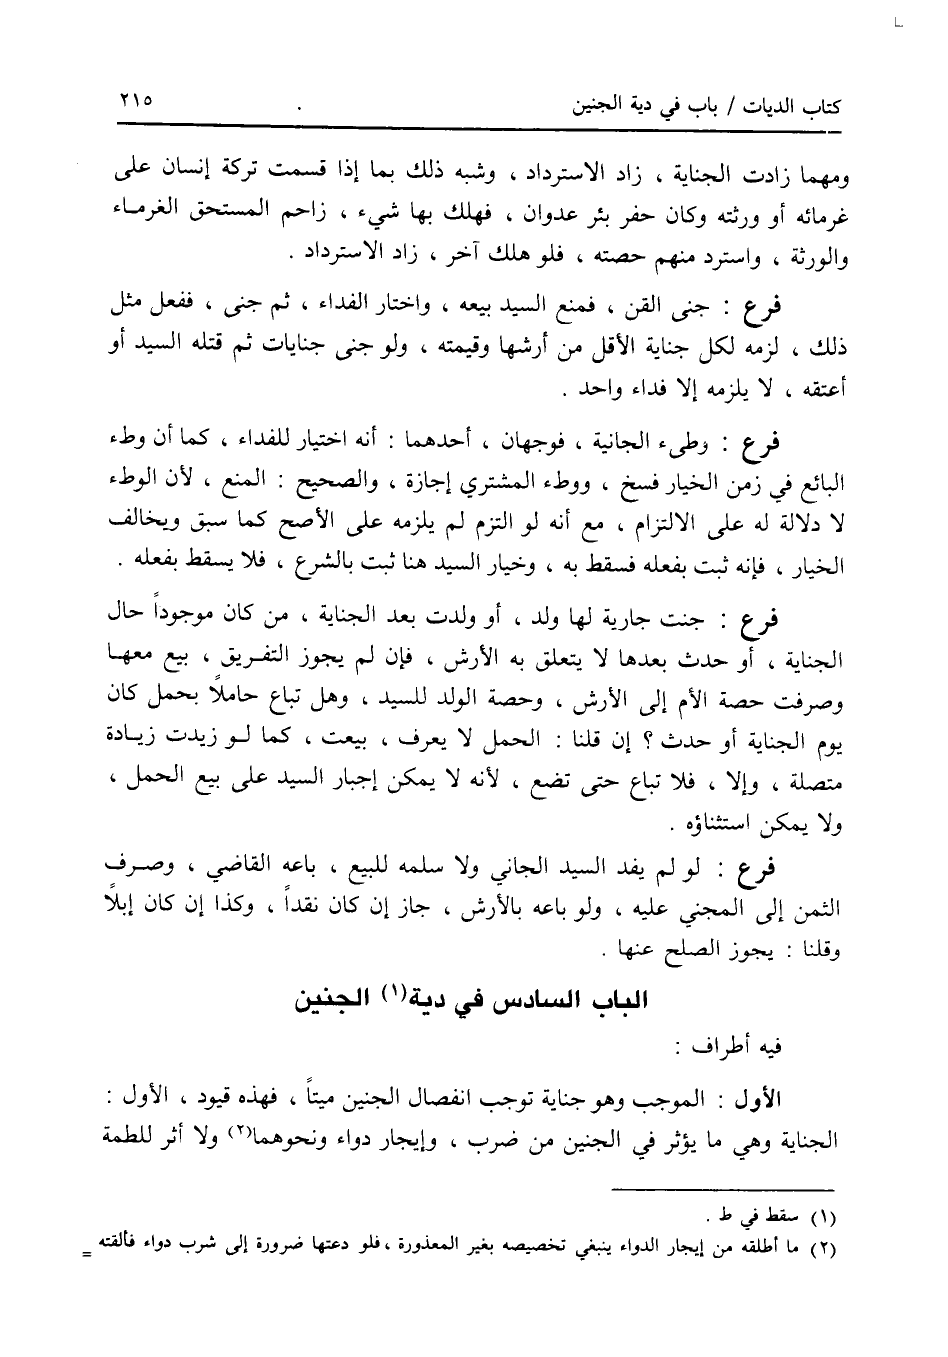 كتاب الديات / باب في دية الجنين ٢١٥
ومهما زادت الجناية ، زاد الاسترداد ، وشبه ذلك بما إذا قسمت تركة إنسان على
غرمائه أو ورثته وكان حفر بئر عدوان ، فهلك بها شيء ، زاحم المستحق الغرماء
والورثة ، واسترد منهم حصته ، فلو هلك آخر ، زاد الاسترداد .
فرع : جنى القن ، فمنع السيد بيعه ، واختار الفداء ، ثم جنى ، ففعل مثل
ذلك ، لزمه لكل جناية الأقل من أرشها وقيمته ، ولو جنى جنايات ثم قتله السيد أو
أعتقه ، لا يلزمه إلا فداء واحد .
فرع : وطىء الجانية ، فوجهان ، أحدهما : أنه اختيار للفداء ، كما أن وطء
البائع في زمن الخيار فسخ ، ووطء المشتري إجازة ، والصحيح : المنع ، لأن الوطء
لا دلالة له على الالتزام ، مع أنه لو التزم لم يلزمه على الأصح كما سبق ويخالف
الخيار ، فإنه ثبت بفعله فسقط به ، وخيار السيد هنا ثبت بالشرع ، فلا يسقط بفعله .
فرع : جنت جارية لها ولد ، أو ولدت بعد الجناية ، من كان موجوداً حال
الجناية ، أو حدث بعدها لا يتعلق به الأرش ، فإن لم يجوز التفريق ، بيع معها
وصرفت حصة الأم إلى الأرش ، وحصة الولد للسيد ، وهل تباع حاملاً بحمل كان
يوم الجناية أو حدث ؟ إن قلنا : الحمل لا يعرف ، بيعت ، كما لو زيدت زيادة
متصلة ، وإلا ، فلا تباع حتى تضع ، لأنه لا يمكن إجبار السيد على بيع الحمل ،
ولا يمكن استثناؤه .
فرع : لو لم يفد السيد الجاني ولا سلمه للبيع ، باعه القاضي ، وصرف
الثمن إلى المجني عليه ، ولو باعه بالأرش ، جاز إن كان نقداً ، وكذا إن كان إبلاً
وقلنا : يجوز الصلح عنها .
الباب السادس في دية(١) الجنين
فيه أطراف :
الأول : الموجب وهو جناية توجب انفصال الجنين ميتاً ، فهذه قيود ، الأول :
الجناية وهي ما يؤثر في الجنين من ضرب ، وإيجار دواء ونحوهما(٢) ولا أثر للطمة
(١) سقط في ط .
(٢) ما أطلقه من إيجار الدواء ينبغي تخصيصه بغير المعذورة ، فلو دعتها ضرورة إلى شرب دواء فألقته =